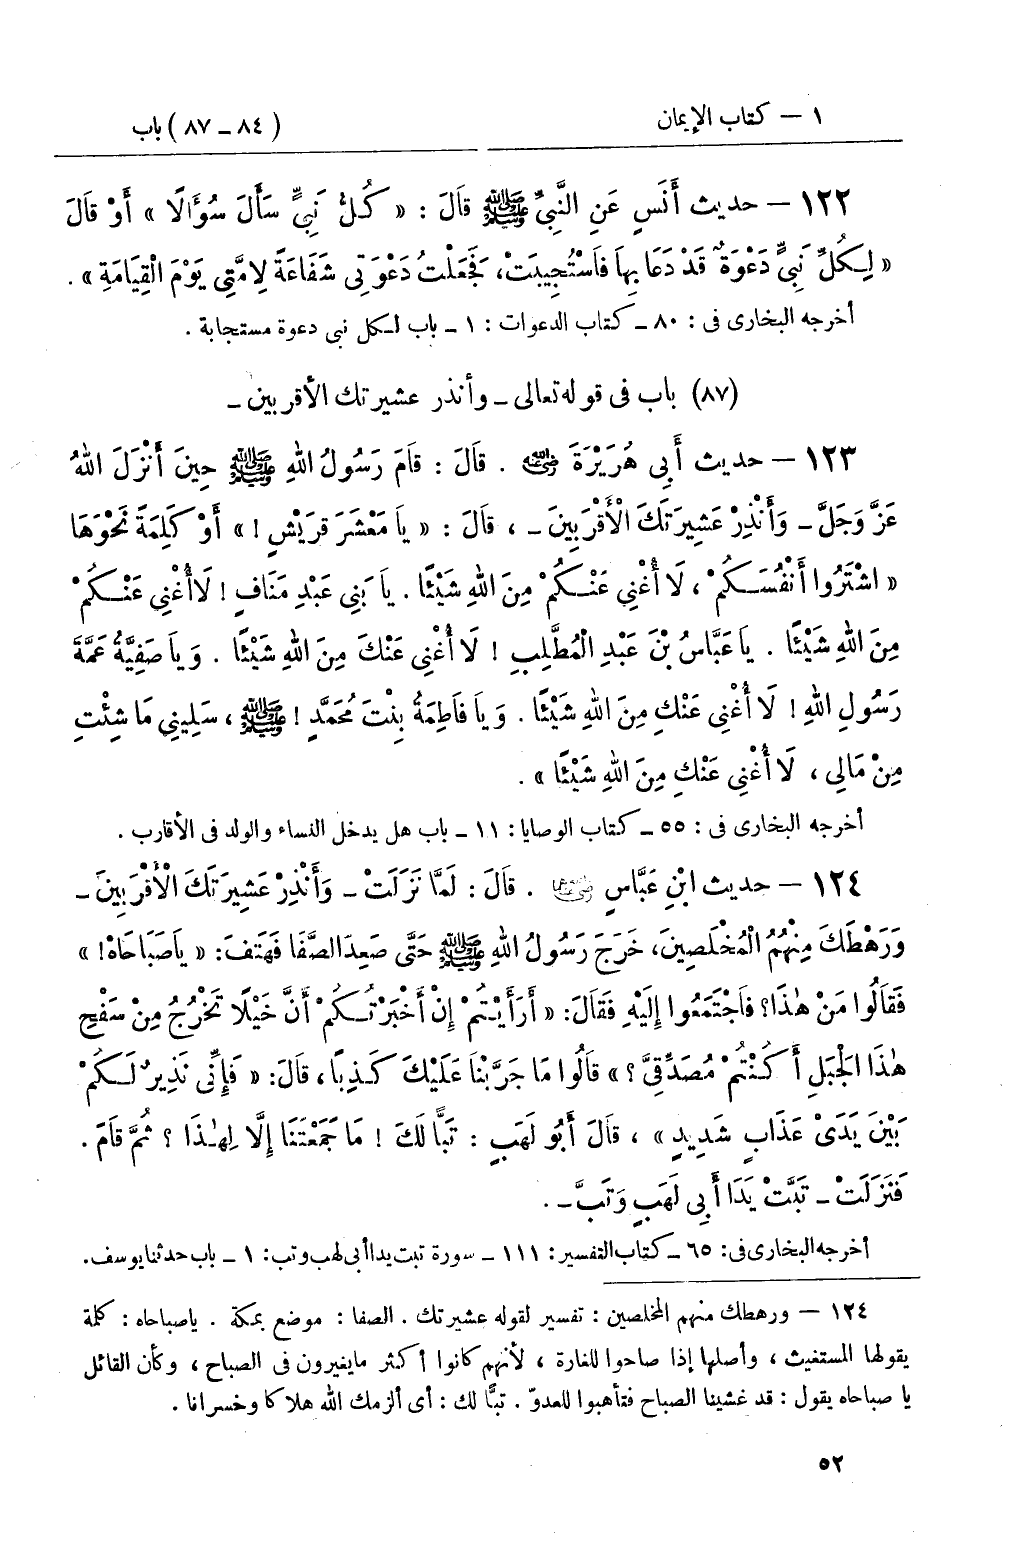 ١ — كتاب الإيمان
( ٨٤ – ٨٧ ) باب
١٢٢ — حديث أَنَسٍ عَنِ النَّبِيِّ ﷺ قَالَ : « كُلُّ نَبِيٍّ سَأَلَ سُؤَالًا » أَوْ قَالَ
« لِكُلِّ نَبِيٍّ دَعْوَةٌ قَدْ دَعَا بِهَا فَاسْتُجِيبَتْ، فَجَعَلْتُ دَعْوَتِي شَفَاعَةً لِأُمَّتِي يَوْمَ الْقِيَامَةِ » .
أخرجه البخارى فى : ٨٠ – كتاب الدعوات : ١ – باب لكل نبى دعوة مستجابة .
(٨٧) باب فى قوله تعالى – وأنذر عشيرتك الأقربين –
١٢٣ — حديث أَبِي هُرَيْرَةَ رضي الله عنه . قَالَ : قَامَ رَسُولُ اللهِ ﷺ حِينَ أَنْزَلَ اللهُ
عَزَّ وَجَلَّ – وَأَنْذِرْ عَشِيرَتَكَ الْأَقْرَبِينَ – ، قَالَ : « يَا مَعْشَرَ قُرَيْشٍ ! » أَوْ كَلِمَةً نَحْوَهَا
« اشْتَرُوا أَنْفُسَكُمْ ، لَا أُغْنِي عَنْكُمْ مِنَ اللهِ شَيْئًا . يَا بَنِي عَبْدِ مَنَافٍ ! لَا أُغْنِي عَنْكُمْ
مِنَ اللهِ شَيْئًا . يَا عَبَّاسُ بْنَ عَبْدِ الْمُطَّلِبِ ! لَا أُغْنِي عَنْكَ مِنَ اللهِ شَيْئًا . وَيَا صَفِيَّةُ عَمَّةَ
رَسُولِ اللهِ ! لَا أُغْنِي عَنْكِ مِنَ اللهِ شَيْئًا . وَيَا فَاطِمَةُ بِنْتَ مُحَمَّدٍ ! ﷺ ، سَلِينِي مَا شِئْتِ
مِنْ مَالِي ، لَا أُغْنِي عَنْكِ مِنَ اللهِ شَيْئًا » .
أخرجه البخارى فى : ٥٥ – كتاب الوصايا : ١١ – باب هل يدخل النساء والولد فى الأقارب .
١٢٤ — حديث ابْنِ عَبَّاسٍ رضي الله عنهما . قَالَ : لَمَّا نَزَلَتْ – وَأَنْذِرْ عَشِيرَتَكَ الْأَقْرَبِينَ –
وَرَهْطَكَ مِنْهُمُ الْمُخْلَصِينَ، خَرَجَ رَسُولُ اللهِ ﷺ حَتَّى صَعِدَ الصَّفَا فَهَتَفَ: « يَا صَبَاحَاهْ! »
فَقَالُوا مَنْ هٰذَا؟ فَاجْتَمَعُوا إِلَيْهِ فَقَالَ: « أَرَأَيْتُمْ إِنْ أَخْبَرْتُكُمْ أَنَّ خَيْلًا تَخْرُجُ مِنْ سَفْحِ
هٰذَا الْجَبَلِ أَكُنْتُمْ مُصَدِّقِيَّ ؟ » قَالُوا مَا جَرَّبْنَا عَلَيْكَ كَذِبًا، قَالَ: « فَإِنِّي نَذِيرٌ لَكُمْ
بَيْنَ يَدَيْ عَذَابٍ شَدِيدٍ » ، قَالَ أَبُو لَهَبٍ : تَبًّا لَكَ ! مَا جَمَعْتَنَا إِلَّا لِهٰذَا ؟ ثُمَّ قَامَ .
فَنَزَلَتْ – تَبَّتْ يَدَا أَبِي لَهَبٍ وَتَبَّ – .
أخرجه البخارى فى : ٦٥ – كتاب التفسير : ١١١ – سورة تبت يدا أبى لهب وتب : ١ – باب حدثنا يوسف.
١٢٤ — ورهطك منهم المخلصين : تفسير لقوله عشيرتك . الصفا : موضع بمكة . ياصباحاه : كلمة
يقولها المستغيث ، وأصلها إذا صاحوا للغارة ، لأنهم كانوا أكثر مايغيرون فى الصباح ، وكأن القائل
يا صباحاه يقول : قد غشينا الصباح فتأهبوا للعدوّ . تبًّا لك : أى ألزمك الله هلاكا وخسرانا .
٥٢